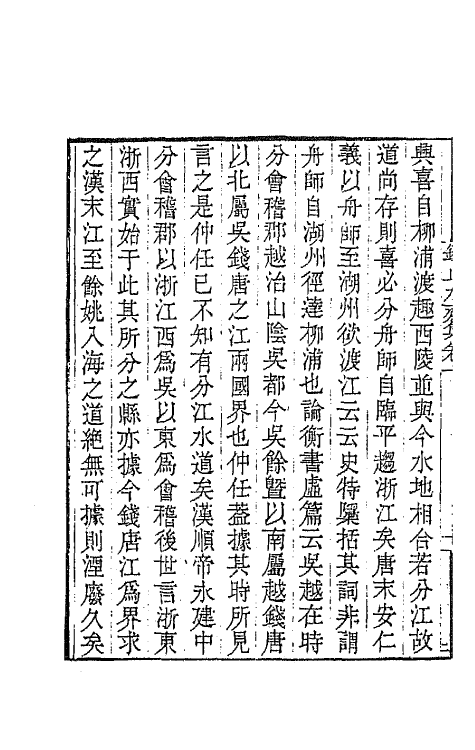 興喜自柳浦渡趣西陵並與今水地相合若分江故
道尚存則喜必分舟師自臨平趨浙江矣唐末安仁
義以舟師至湖州欲渡江云云史特檃括其詞非謂
舟師自湖州徑達柳浦也論衡書虛篇云吳越在時
分會稽郡越治山陰吳都今吳餘暨以南屬越錢唐
以北屬吳錢唐之江兩國界也仲任蓋據其時所見
言之是仲任已不知有分江水道矣漢順帝永建中
分會稽郡以浙江西爲吳以東爲會稽後世言浙東
浙西實始于此其所分之縣亦據今錢唐江爲界求
之漢末江至餘姚入海之道絶無可據則湮廢久矣